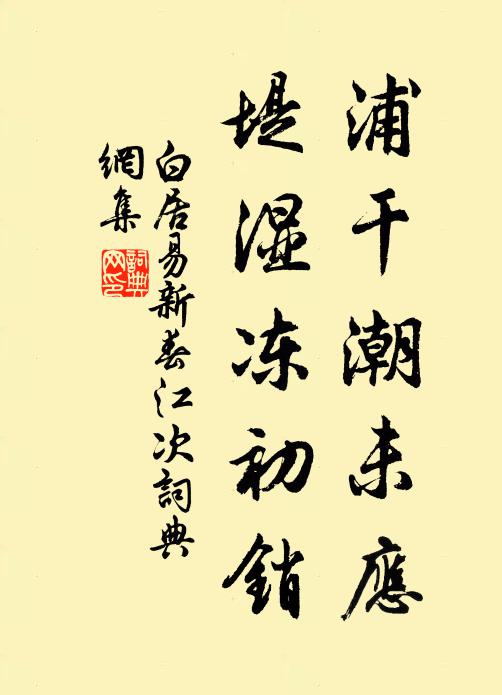 浦干潮未應
堤湿冻初銷
白居易新春江次詞典
網集
詞典
网印